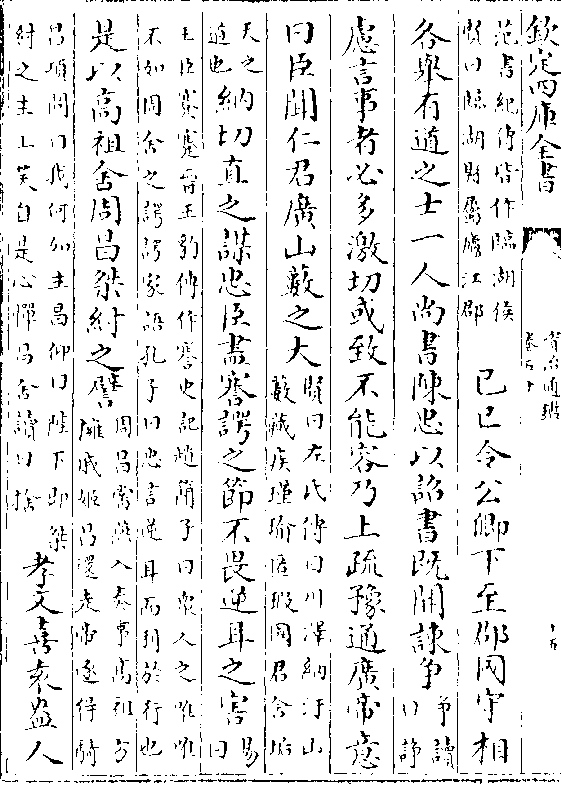 欽定四庫全書
資治通鑑
卷五十
十五
范書紀傳皆作臨湖侯
賢曰臨湖縣屬廬江郡
己巳令公卿下至郡國守相
各舉有道之士一人尚書陳忠以詔書既開諫争
争讀
曰諍
慮言事者必多激切或致不能容乃上疏豫通廣帝意
曰臣聞仁君廣山藪之大
賢曰左氏傳曰川澤納汙山
藪藏疾瑾瑜匿瑕國君含垢
天之
道也
納切直之謀忠臣盡謇諤之節不畏逆耳之害
易
曰
王臣蹇蹇晉王豹傳作謇史記趙簡子曰衆人之唯唯
不如周舍之諤諤家語孔子曰忠言逆耳而利於行也
是以高祖舍周昌桀紂之譬
周昌嘗燕入奏事高祖方
擁戚姬昌還走帝逐得騎
昌項問曰我何如主昌仰曰陛下即桀
紂之主上笑自是心憚昌舍讀曰捨
孝文喜袁盎人